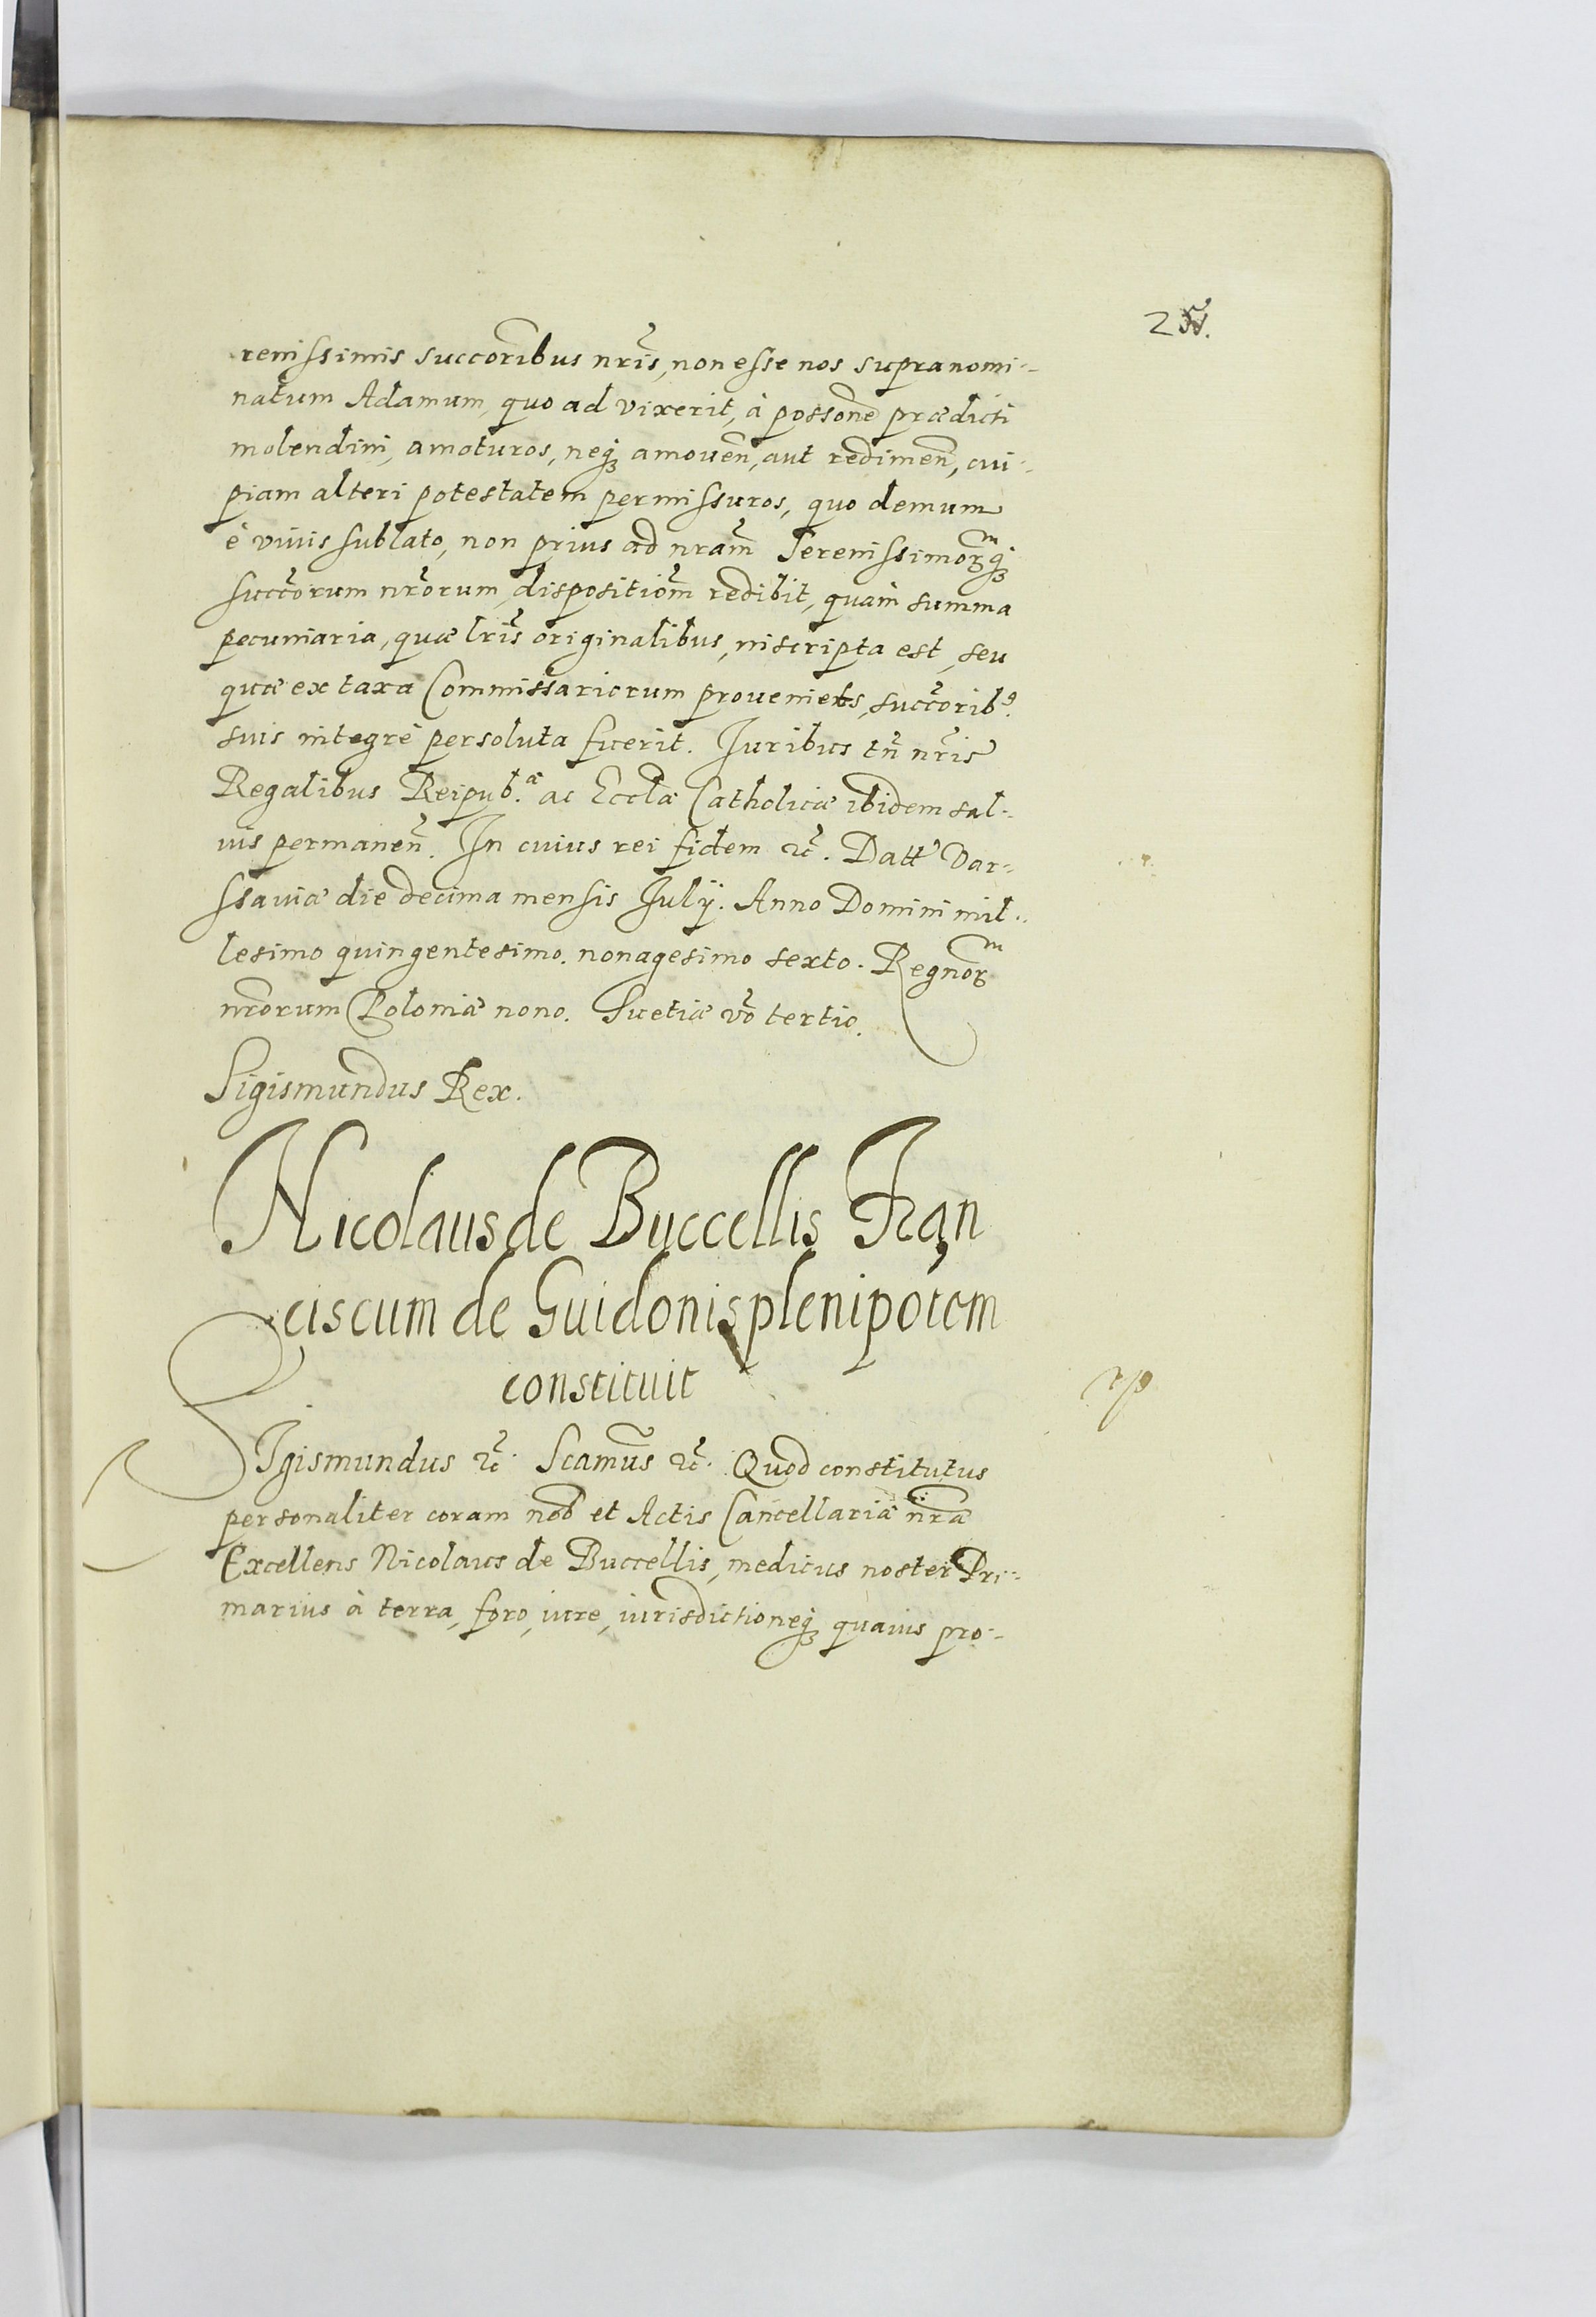 renissimis succoribus nris, non esse nos supranomi-
natum Adamum, quo ad vixerit, à possone prædicti
molendini, amoturos, neq amouen, aut redimen, cui-
piam alteri potestatem permissuros, quo demum
è viuis sublato, non prius ad nram Serenissimormq
succorum nrorum, dispositiom redibit, quàm summa
pecuniaria, quæ lris originalibus, inscripta est, seu
quæ ex taxa Commissariorum proueniets, succorib9.
suis integrè persoluta fuerit. Juribus tn nris
Regalibus Reipub.æ ac Eccla Catholicæ ibidem sal-
uis permanen. In cuius rei fidem &c. Datt Var-
ssauiæ die decima mensis July. Anno Domini mil-
lesimo quingentesimo. nonagesimo sexto. Regnorm
nrorum Poloniæ nono. Suetiæ vo tertio.
Sigismundus Rex.
Nicolaus de Buccellis Fran
ciscum de Guidonis plenipotem
constituit
SIgismundus &c. Scamus &c. Quod constitutus
personaliter coram nob et Actis Cancellariæ nræ
Excellens Nicolaus de Buccellis, medicus noster Pri-
marius à terra, foro, iure, iurisdictioneq quauis pro-